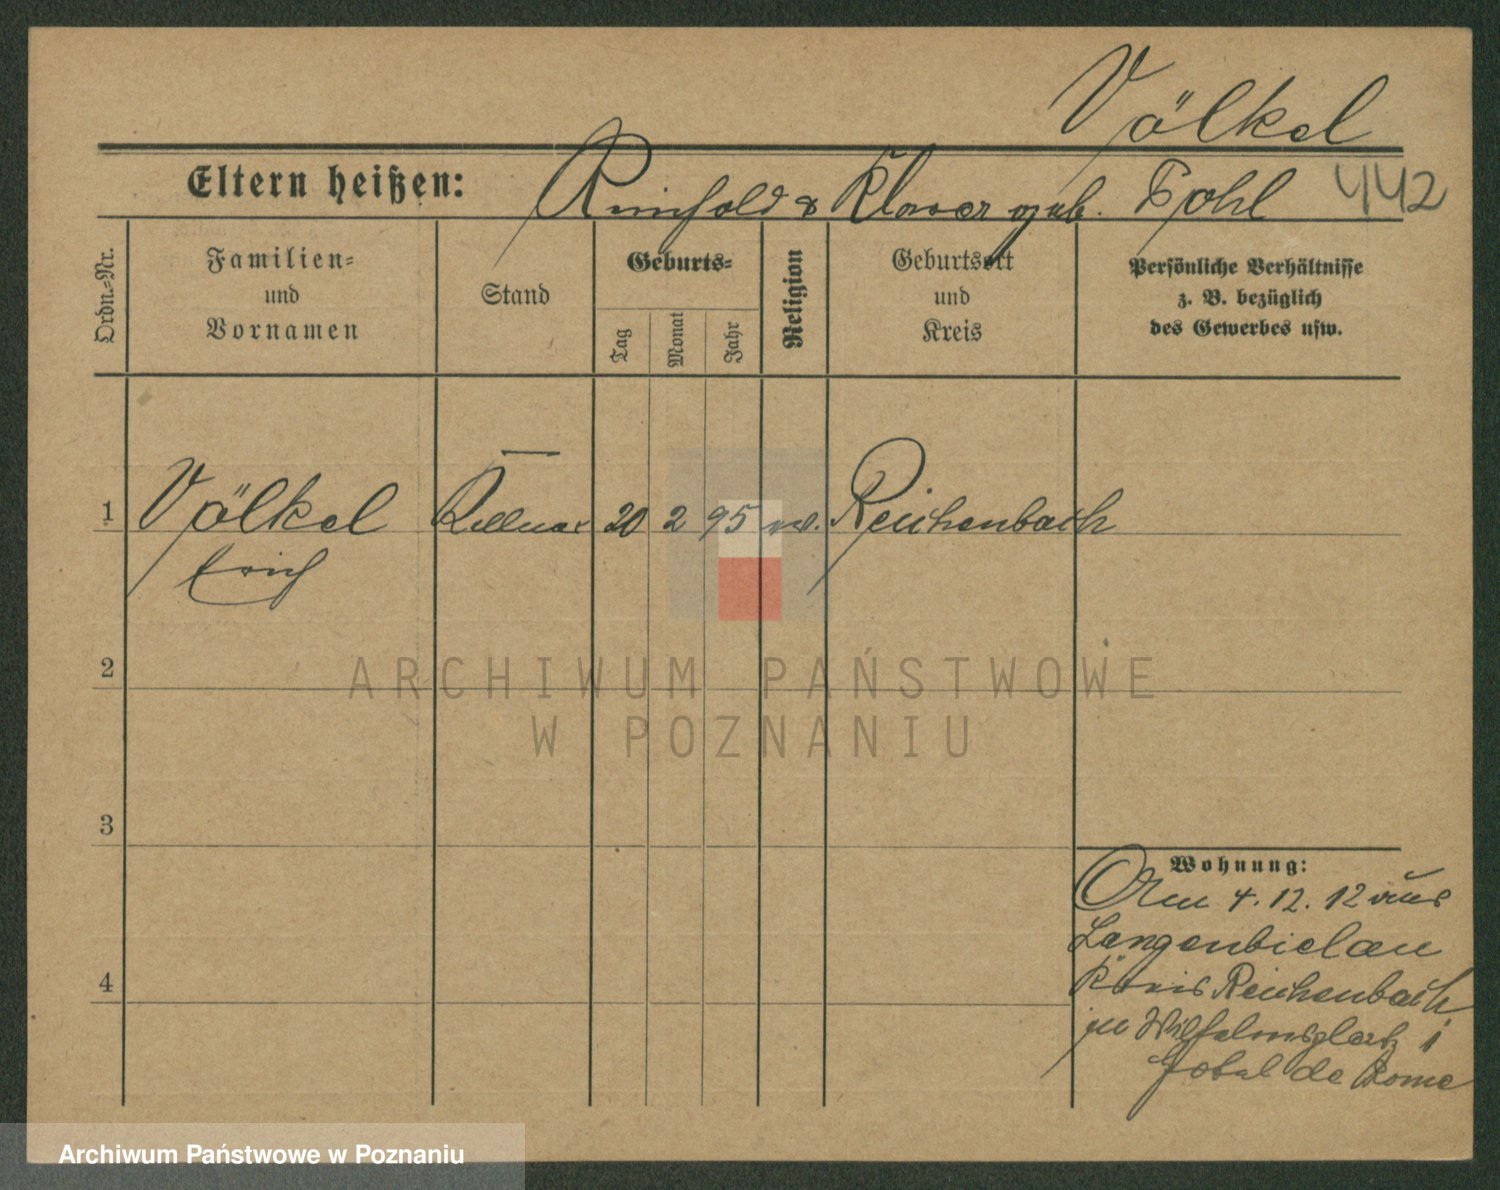 Völkel
Eltern heißen: Reinhold & Klara geb. Pohl 442
Ordn.-Nr.
Familien=
und
Vornamen
Stand
Geburts=
Tag
Monat
Jahr
Religion
Geburtsort
und
Kreis
Persönliche Verhältnisse
z. B. bezüglich
des Gewerbes usw.
1 Völkel Kellner 20 2 95 ev. Reichenbach
Erich
2
3
4
Wohnung:
Am 4. 12. 12 aus
Langenbielau
Kreis Reichenbach
zu Wilhelmsplatz 1
Hotel de Rome
ARCHIWUM PAŃSTWOWE
W POZNANIU
Archiwum Państwowe w Poznaniu